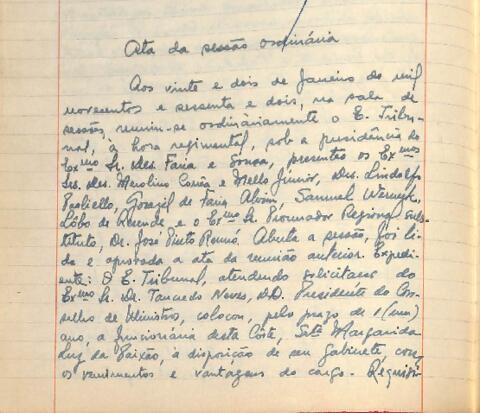 Ata da sessão ordinária
Aos vinte e dois de Janeiro de mil
novecentos e sessenta e dois, na sala de
sessão, reuniu-se ordinàriamente o E. Tribu-
nal, à hora regimental, sob a presidência do
Exmo Sr. Des. Faria e Sousa, presentes os Exmos
Srs. Des. Merolino Corrêa e Mello Júnior, Drs. Lindolfo
Paoliello, Gorazil de Faria Alvim, Samuel Werneck,
Lôbo de Resende e o Exmo Sr. Procurador Regional Subs-
tituto, Dr. José Pinto Renó. Aberta a sessão, foi li-
da e aprovada a ata da reunião anterior. Expedi-
ente: O E. Tribunal, atendendo solicitação do
Exmo Sr. Dr. Tancredo Neves, DD. Presidente do Con-
selho de Ministros, colocou, pelo prazo de 1 (um)
ano, a funcionária desta Côrte, Srta Margarida
Luz da Paixão, à disposição de seu gabinete, com
os vencimentos e vantagens do cargo. - Requisi-